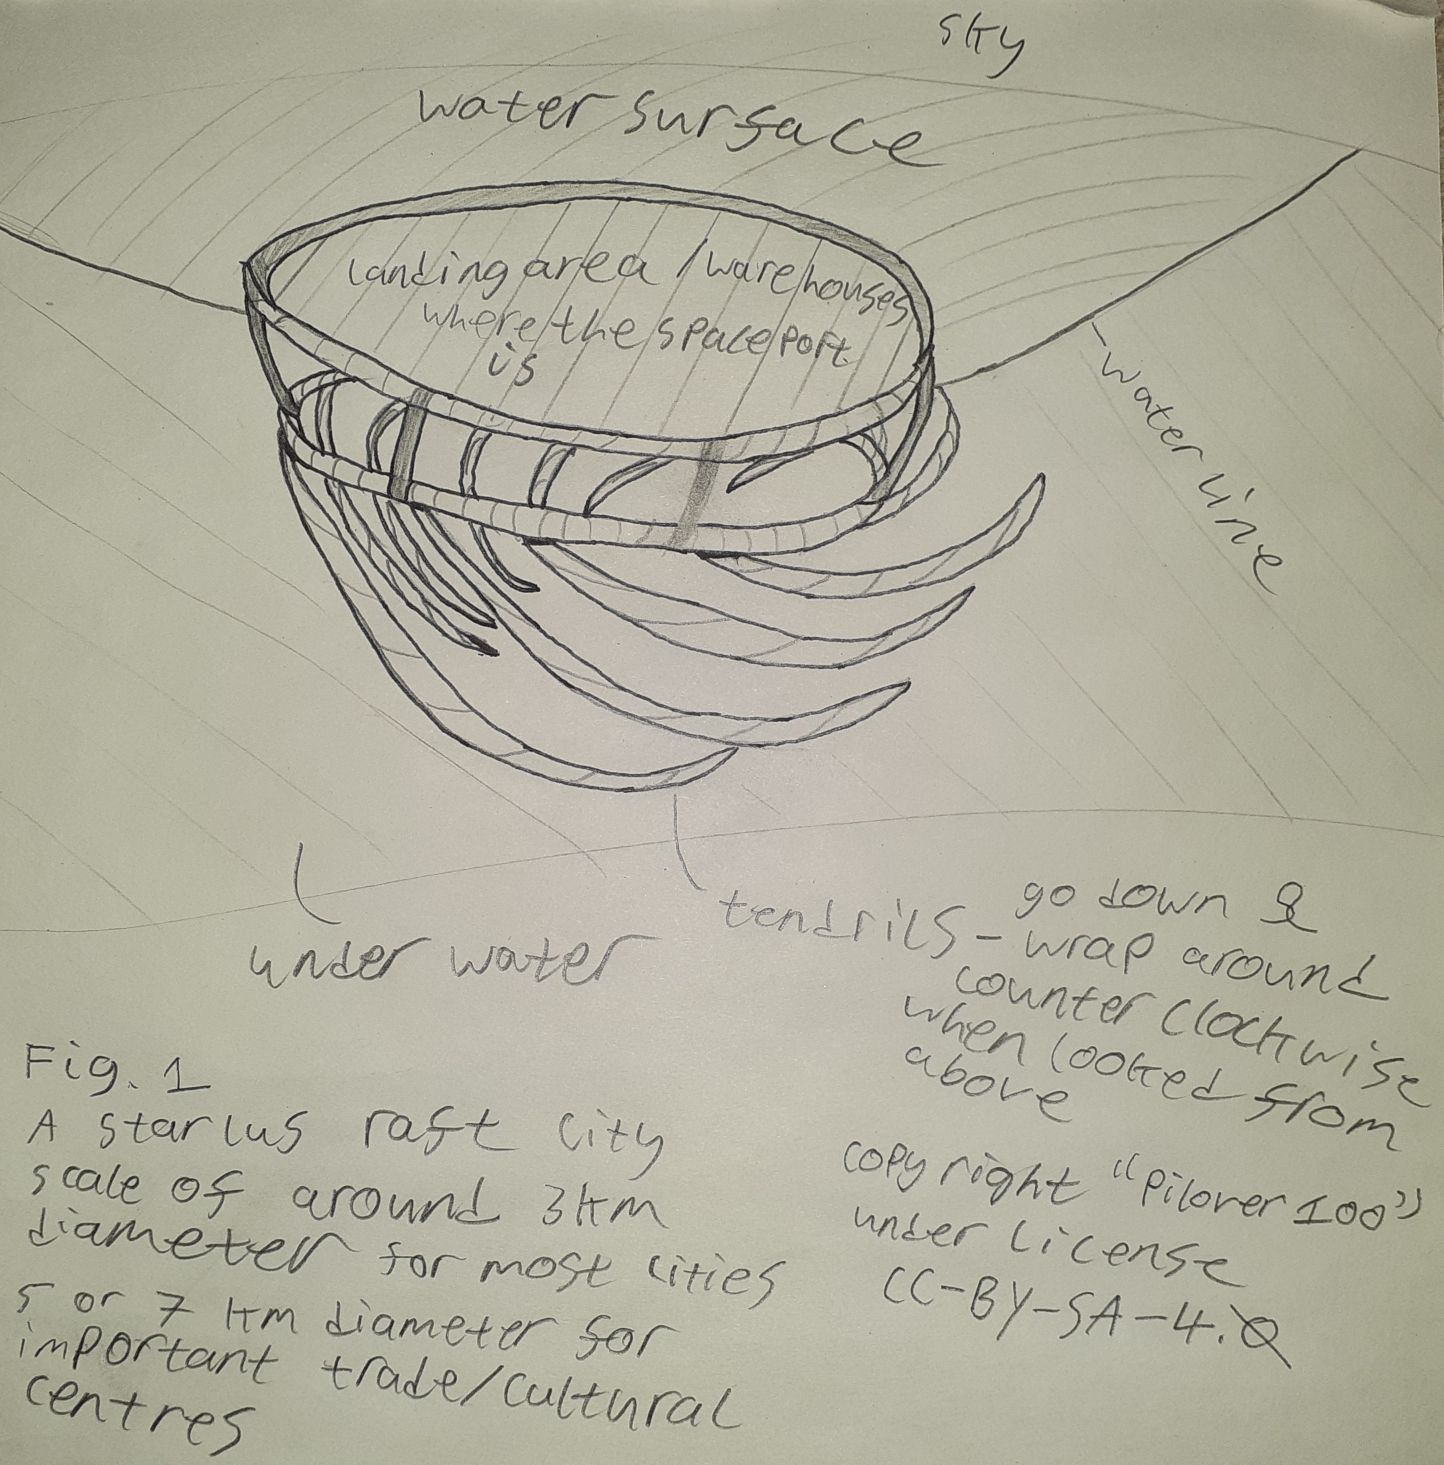 sky
water surface
landing area / warehouses
where the spaceport
is
water line
under water
tendrils - go down &
wrap around
counter clockwise
when looked from
above
Fig. 1
A starlus raft city
scale of around 3km
diameter for most cities
5 or 7 km diameter for
important trade/cultural
centres
copyright "Pilover100"
under license
CC-BY-SA-4.0